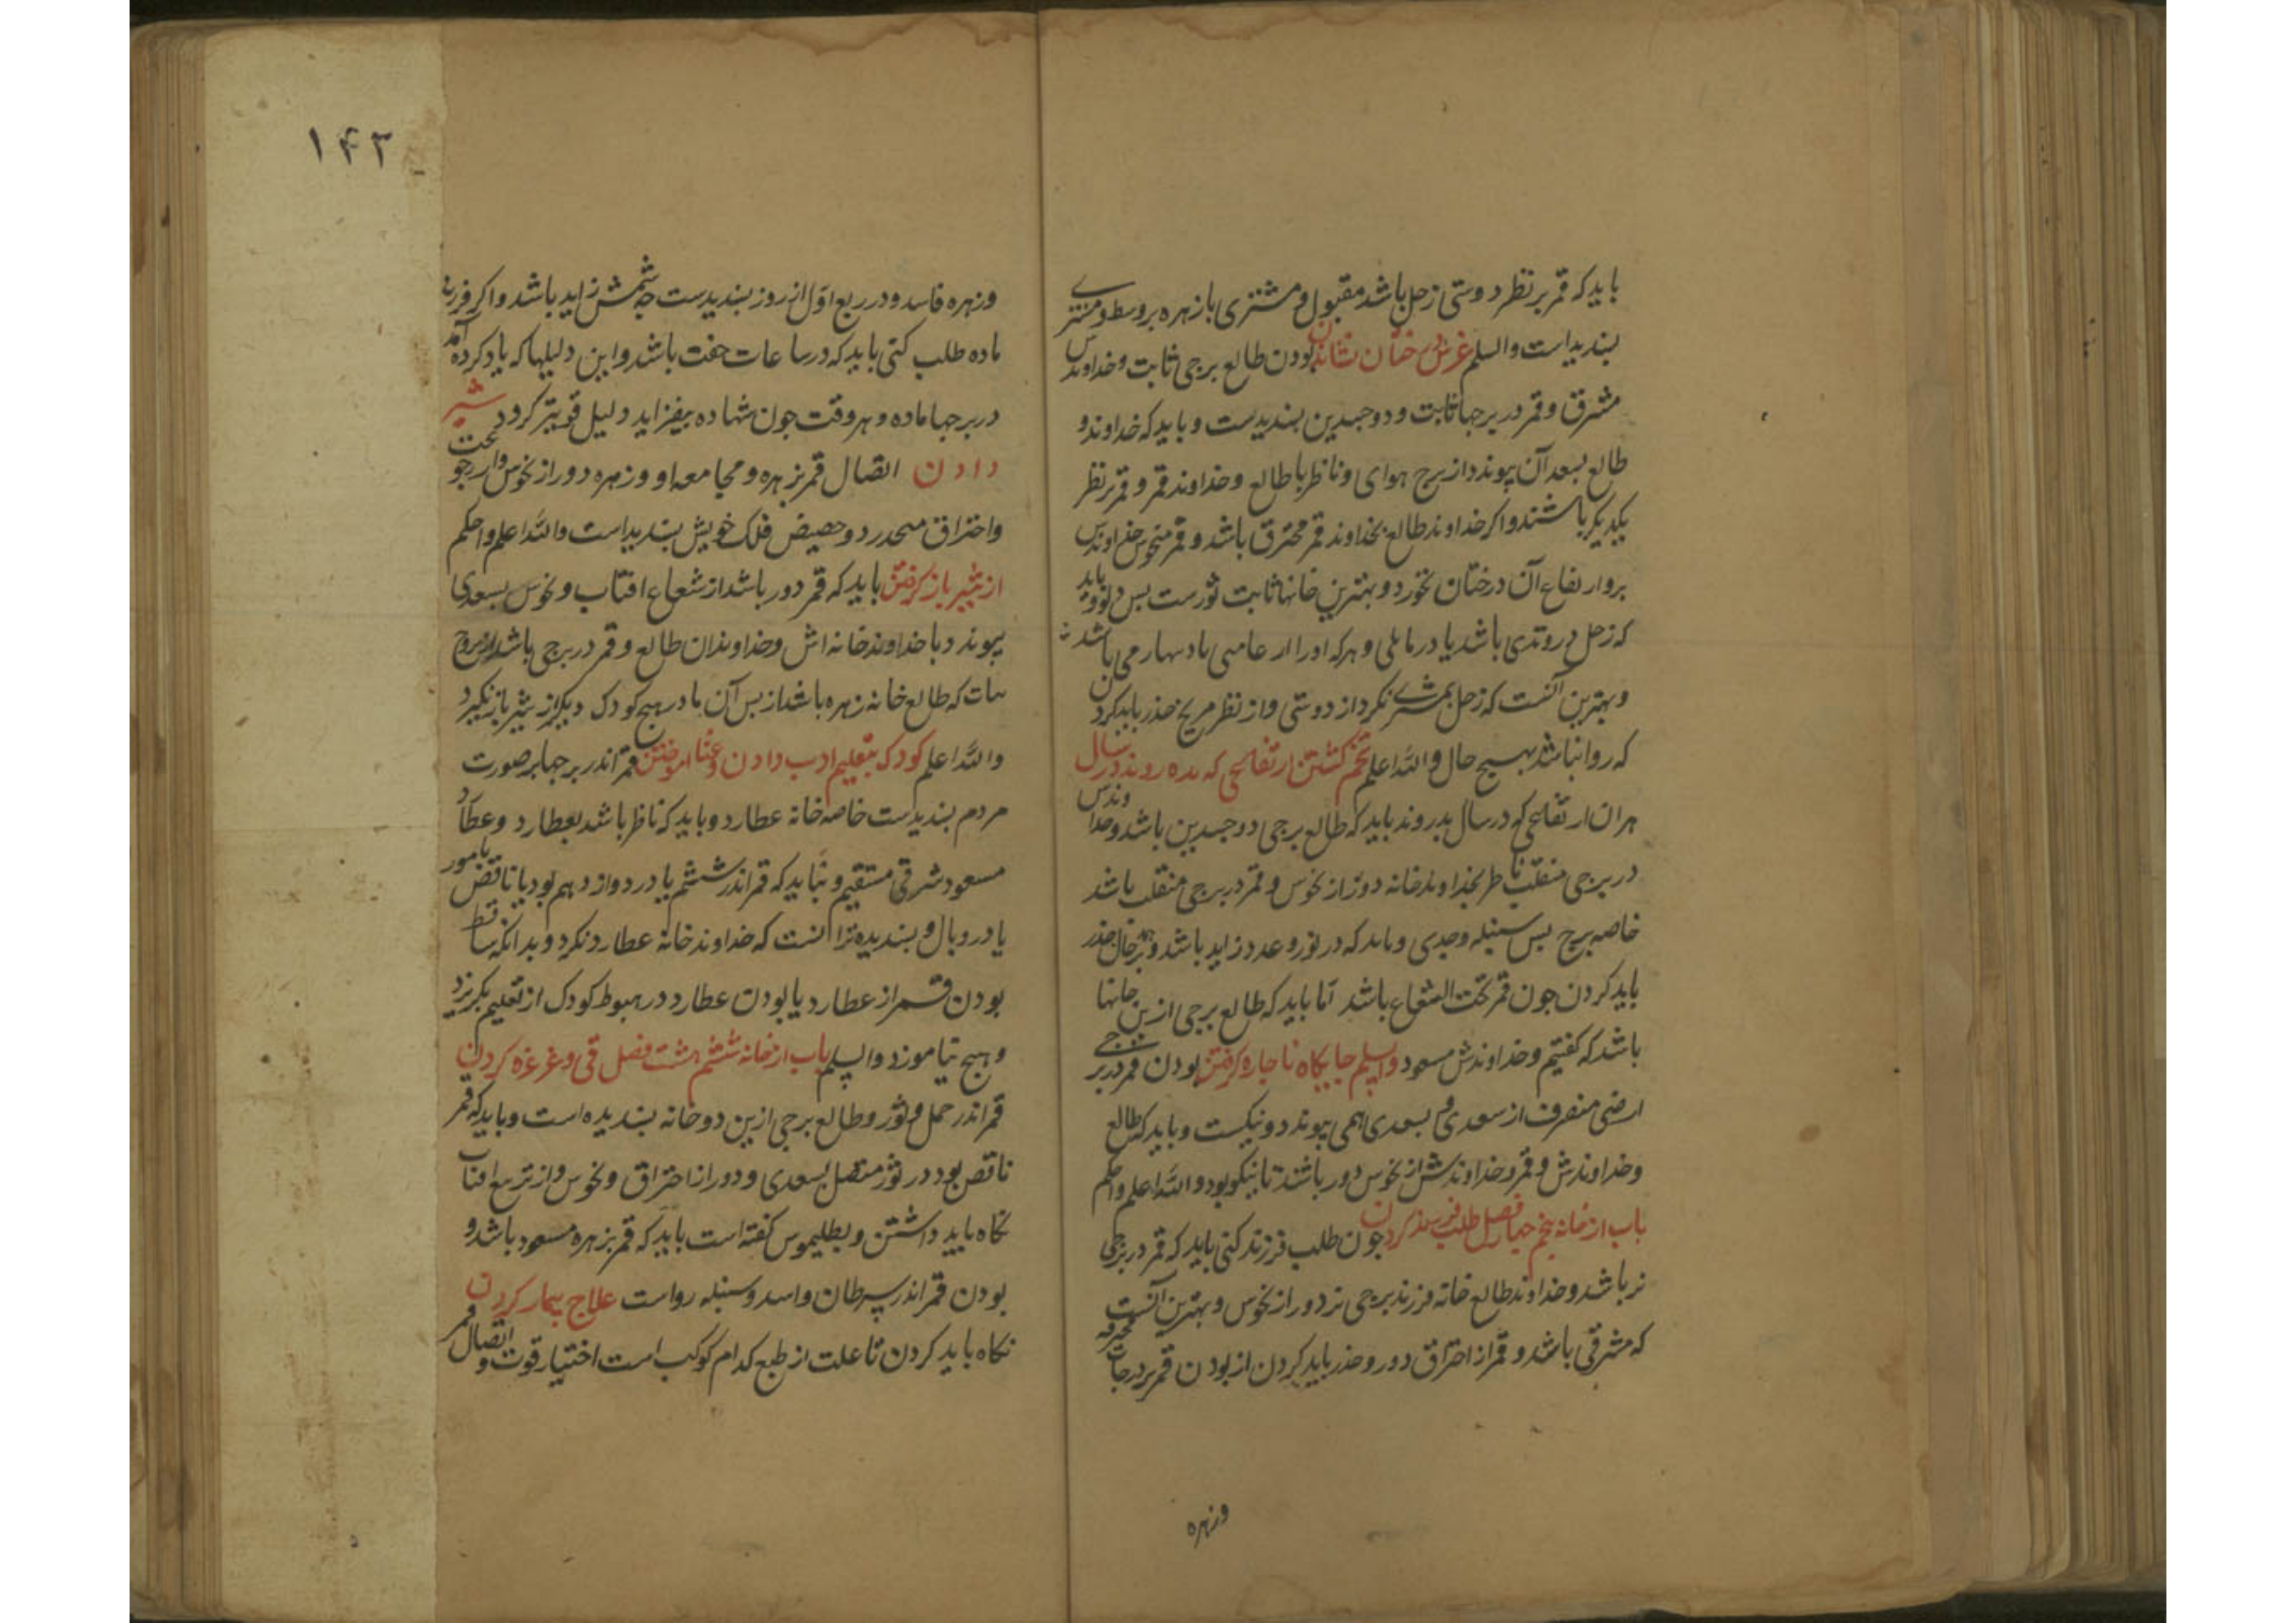 باید که قمر بر نظر دوستی زحل باشد مقبول و مشتری با زهره بر وسط و مشتری
بندیداست والسلم غرس درختان نشاندن بودن طالع برجی ثابت و خداوندس
مشرق و قمر در برجها ثابت و دوجسدین بندیدست و باید که خداوند و
طالع بسعد آن پیوندد از برج هوای و ناظر با طالع و خداوند قمر و قمر بر نظر
یکدیکر باشند و اکر خداوند طالع بخداوند قمر محترق باشد و قمر منحوس خداوندس
بر و ارتفاع آن درختان نخورد و بهترین خانها ثابت ثورست بس دلو و باید
که زحل در وتدی باشد یا در مایلی و هرکه اورا از می باشد
و بهترین آنست که زحل بمشتری نکرد از دوستی و از نظر مریخ حذر باید کردن
که روا نباشد بهیچ حال والله اعلم تخم کشتن ارتفاعی که بدروند در سال
هر ان ارتفاعی که در سال بدروند باید که طالع برجی دوجسدین باشد و خداوندس
در برجی منقلب ناظر بخداوند خانه دور از نحوس و قمر در برجی منقلب باشد
خاصه برج بس سنبله و جدی و باید که در نور و عدد زاید باشد و بهر حال حذر
باید کردن جون قمر تحت الشعاع باشد اما باید که طالع برجی ازین خانها
باشد که کفتیم و خداوندش مسعود والسلم جایکاه ناجاره کرفتن بودن قمر در برجی
ارضی منصرف از سعدی و بسعدی همی پیوندد و نیکست و باید که طالع
و خداوندش و قمر و خداوندش از نحوس دور باشند تا نیکو بود والله اعلم واحکم
باب از خانه پنجم جهار فصل طلب فرزند کردن جون طلب فرزند کنی باید که قمر در برجی
نر باشد و خداوند طالع خانه فرزند برجی نر دور از نحوس و بهترین آنست
که مشرقی باشد و قمر از احتراق دور و حذر باید کردن از بودن قمر در درجات محترقه
وزهره
۱۴۳
وزهره فاسد و در ربع اول از روز بندیدست جه شمسش زاید باشد و اکر فرزند
ماده طلب کنی باید که در ساعات جفت باشد و این دلیلها که یاد کرده آمد
در برجها ماده و هر وقت جون شهاده بیفزاید دلیل قویتر کردد شیر
دادن اتصال قمر بزهره و مجامعه او و زهره دور از نحوس و ارجوعت
و احتراق منحدر در حضیض فلک خویش بندیداست والله اعلم واحکم
از شیر باز کرفتن باید که قمر دور باشد از شعاع افتاب و نحوس بسعدی
پیوندد با خداوند خانه اش و خداوندان طالع و قمر در برجی باشد از بروج
که طالع خانه زهره باشد از بس آن مادر هیج کودک دیکر از شیر باز نکیرد
والله اعلم کودک بتعلیم ادب دادن و غنا اموختن قمر اندر برجها بر صورت
مردم بندیدست خاصه خانه عطارد و باید که ناظر باشد بعطارد و عطارد
مسعود شرقی مستقیم و نباید که قمر اندر ششم یا در دوازدهم بود یا ناقص
یا در وبال و بندیده تر آنست که خداوند خانه عطارد نکرد و بدانکه ساقط
بودن قمر از عطارد یا بودن عطارد در هبوط کودک از تعلیم بکریزد
و هیج نیاموزد والسلم باب از خانه ششم هشت فصل قی و غرغره کردن
قمر اندر حمل و ثور و طالع برجی ازین دو خانه بندیده است و باید که قمر
ناقص بود در ثور متصل بسعدی و دور از احتراق و نحوس و از تربیع افتاب
نکاه باید داشتن و بطلیموس کفته است باید که قمر بزهره مسعود باشد و
بودن قمر اندر سرطان و اسد و سنبله رواست علاج بیمار کردن
نکاه باید کردن تا علت از طبع کدام کوکب است اختیار قوت و اتصال قمر